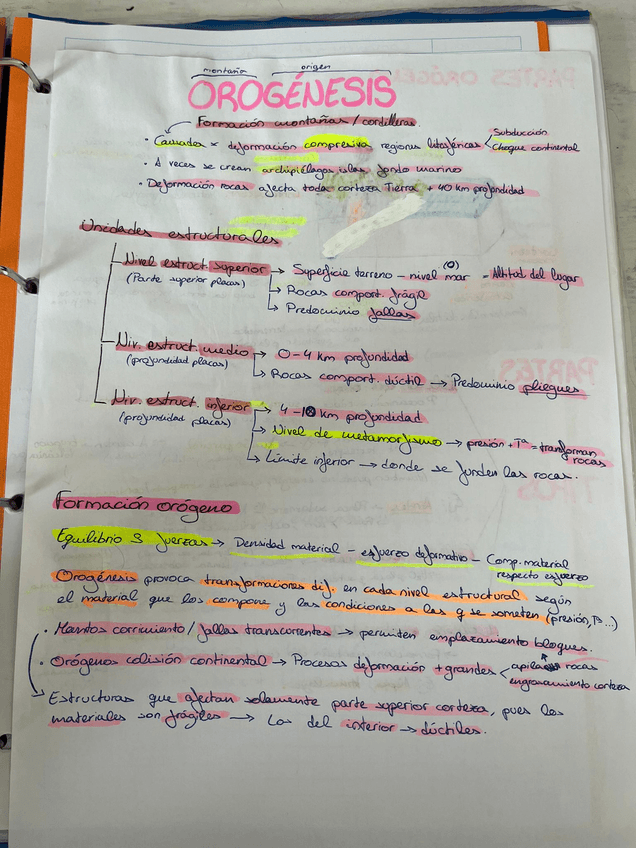 montaña origen
OROGÉNESIS
Formación montañas/cordilleras.
· Causada x deformación compresiva regiones litosféricas < Subducción
Choque continental
· A veces se crean archipiélagos islas fondo marino
· Deformación rocas afecta toda corteza Tierra + 40 km profundidad
Unidades estructurales
Nivel estruct. superior → Superficie terreno - nivel mar (0) = Altitud del lugar
(Parte superior placas) → Rocas comport. frágil
→ Predominio fallas
Niv. estruct. medio → 0-4 km profundidad
(profundidad placas) → Rocas comport. dúctil → Predominio pliegues
Niv. estruct. inferior → 4-10 km profundidad
(profundidad placas) → Nivel de metamorfismo → presión + Tª = transforman
rocas
→ Límite inferior → donde se funden las rocas.
Formación orógeno
Equilibrio 3 fuerzas → Densidad material - esfuerzo deformativo - Comp. material
respecto esfuerzo
Orogénesis provoca transformaciones dif. en cada nivel estructural según
el material que los compone y las condiciones a las q se someten (presión, Tª...)
· Mantos corrimiento/fallas transcurrentes → permiten emplazamiento bloques.
· Orógenos colisión continental → Procesos deformación + grandes < rocas
engrosamiento corteza
Estructuras que afectan solamente parte superior corteza, pues los
materiales son frágiles → Los del interior → dúctiles.